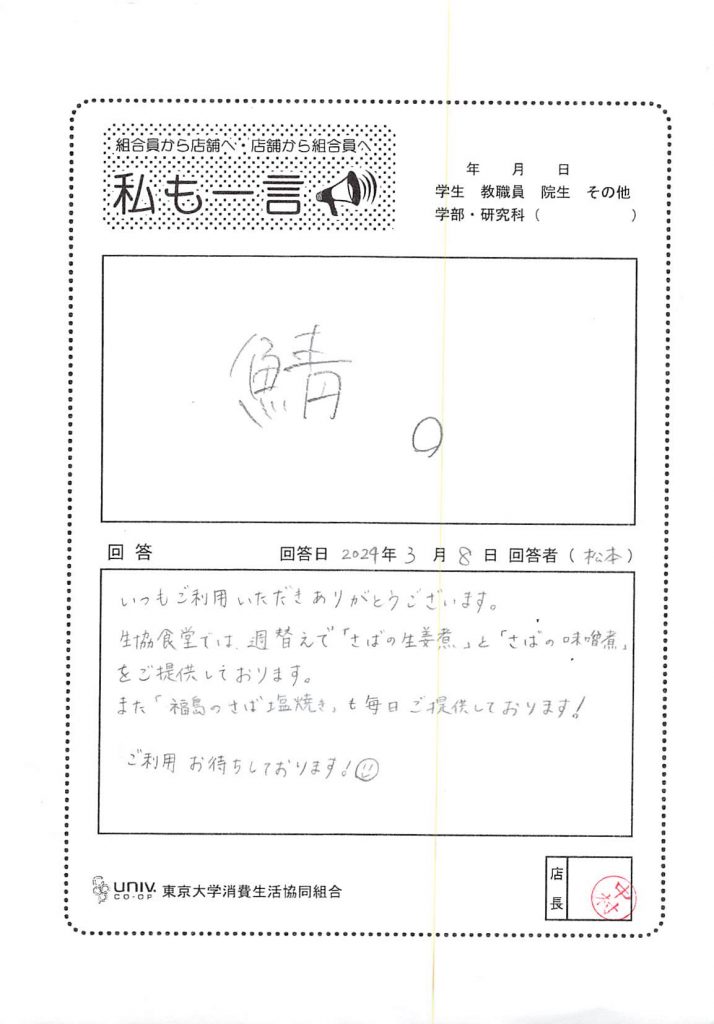 組合員から店舗へ・店舗から組合員へ
私も一言
年 月 日
学生 教職員 院生 その他
学部・研究科（ ）
鯖。
回答 回答日 2024年3月8日 回答者（松本）
いつもご利用いただきありがとうございます。
生協食堂では、週替えで「さばの生姜煮」と「さばの味噌煮」
をご提供しております。
また「福島のさば塩焼き」も毎日ご提供しております!
ご利用お待ちしております!
UNIV. CO-OP 東京大学消費生活協同組合
店長